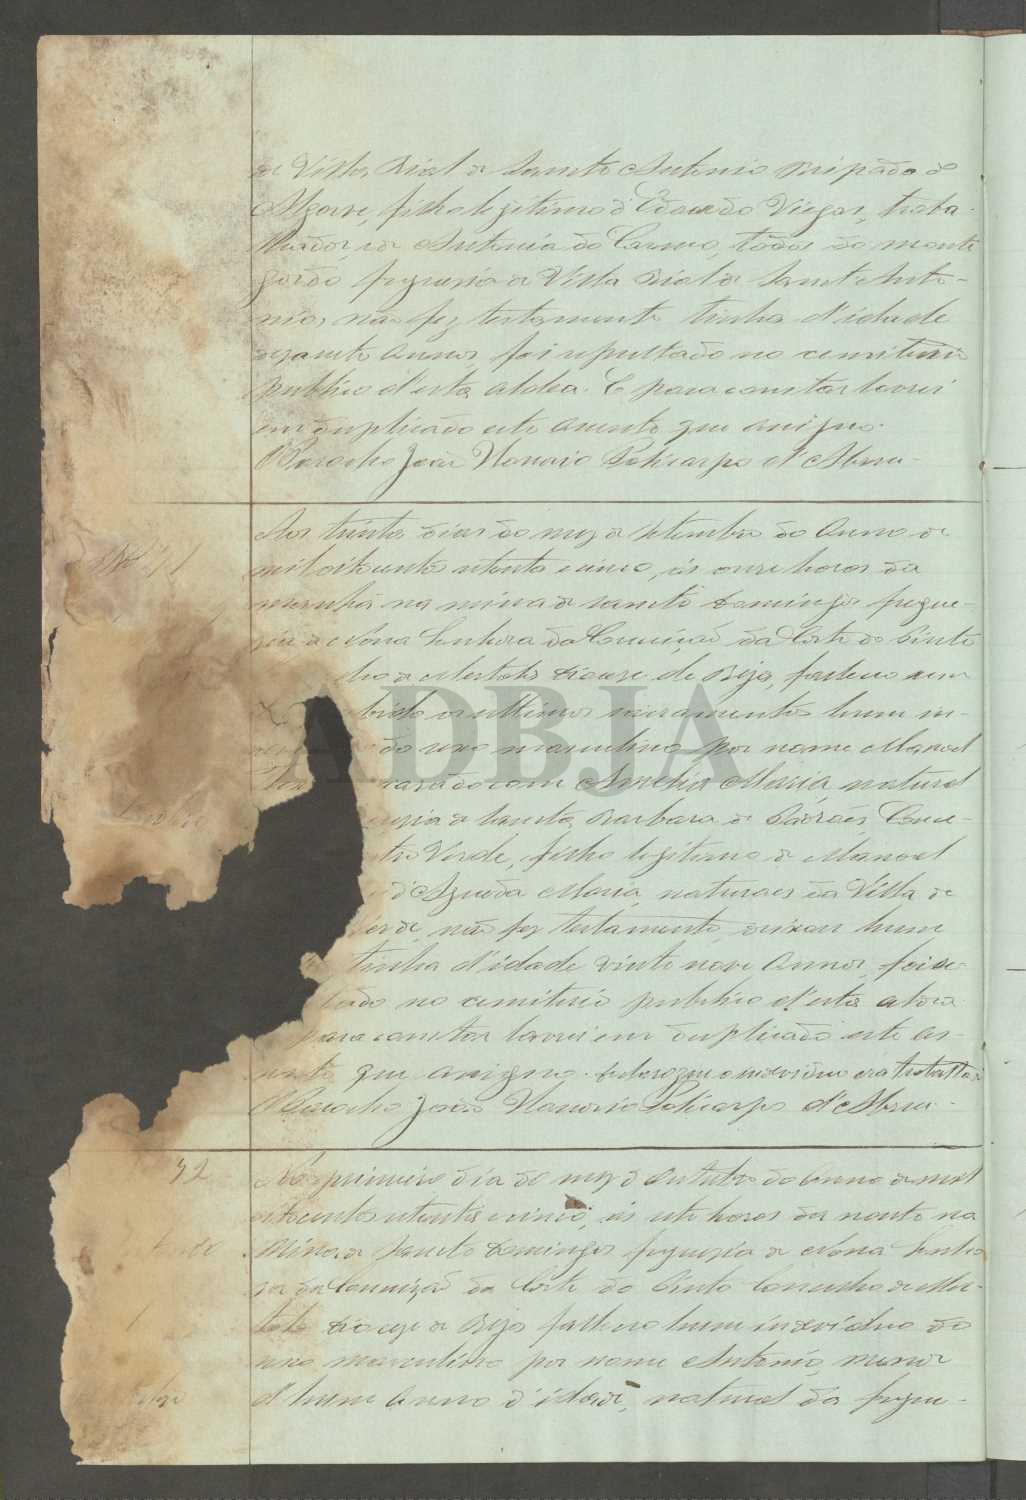 de Villa Rial de Sancto Antonio Bispado do
Algarve, filho legitimo d'Eduardo Viegas, traba-
lhador, e de Antonia do Carmo, todos do monte
gordo freguesia de Villa Rial de Sancto Anto-
nio, não fez testamento tinha d'idade
annos foi sepultado no cemiterio
publico d'esta aldea. E para constar lavrei
em duplicado este assento que assigno.
O Parocho João Honorio Policarpo d'Abreu-
Nº 71
Aos trinta dias do mez de Setembro do anno de
mil oito centos oitenta e cinco, ás onze horas da
manhã na mina de Sancto Domingos fregue-
zia de Nossa Senhora da Conceição da Corte do Pinto
lho de Mertola Diocese de Beja, faleceo sem
bido os ultimos sacramentos hum in-
do sexo masculino por nome Manoel
casado com Amelia Maria, natural
guezia de Sancta Barbara de Padrões Conce-
stro Verde, filho legitimo de Manoel
e d'Agueda Maria, naturaes da Villa de
Verde, não fez testamento, deixou hum
tinha d'idade vinte nove annos, foi se-
tado no cemiterio publico d'esta aldea
para constar lavrei em duplicado este as-
sento que assigno.
O Parocho João Honorio Policarpo d'Abreu-
72
No primeiro dia do mez d'Outubro do anno de mil
oitocentos oitenta e cinco, ás sete horas da noute na
Mina de Sancto Domingos freguezia de Nossa Senho
ra da Conceição da Corte do Pinto Concelho de Mer-
tola Diocese de Beja falleceo hum individuo do
sexo masculino por nome Antonio, menor
d'hum anno d'idade, natural da fregue-
ADBJA